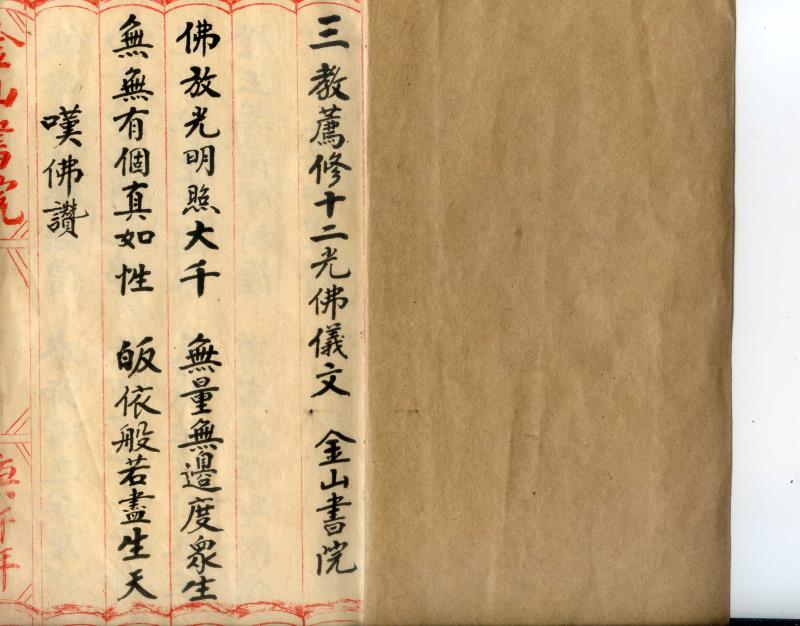 三教薦修十二光佛儀文 金山書院
佛放光明照大千 無量無邊度眾生
無無有個真如性 皈依般若盡生天
嘆佛讚
金山書院